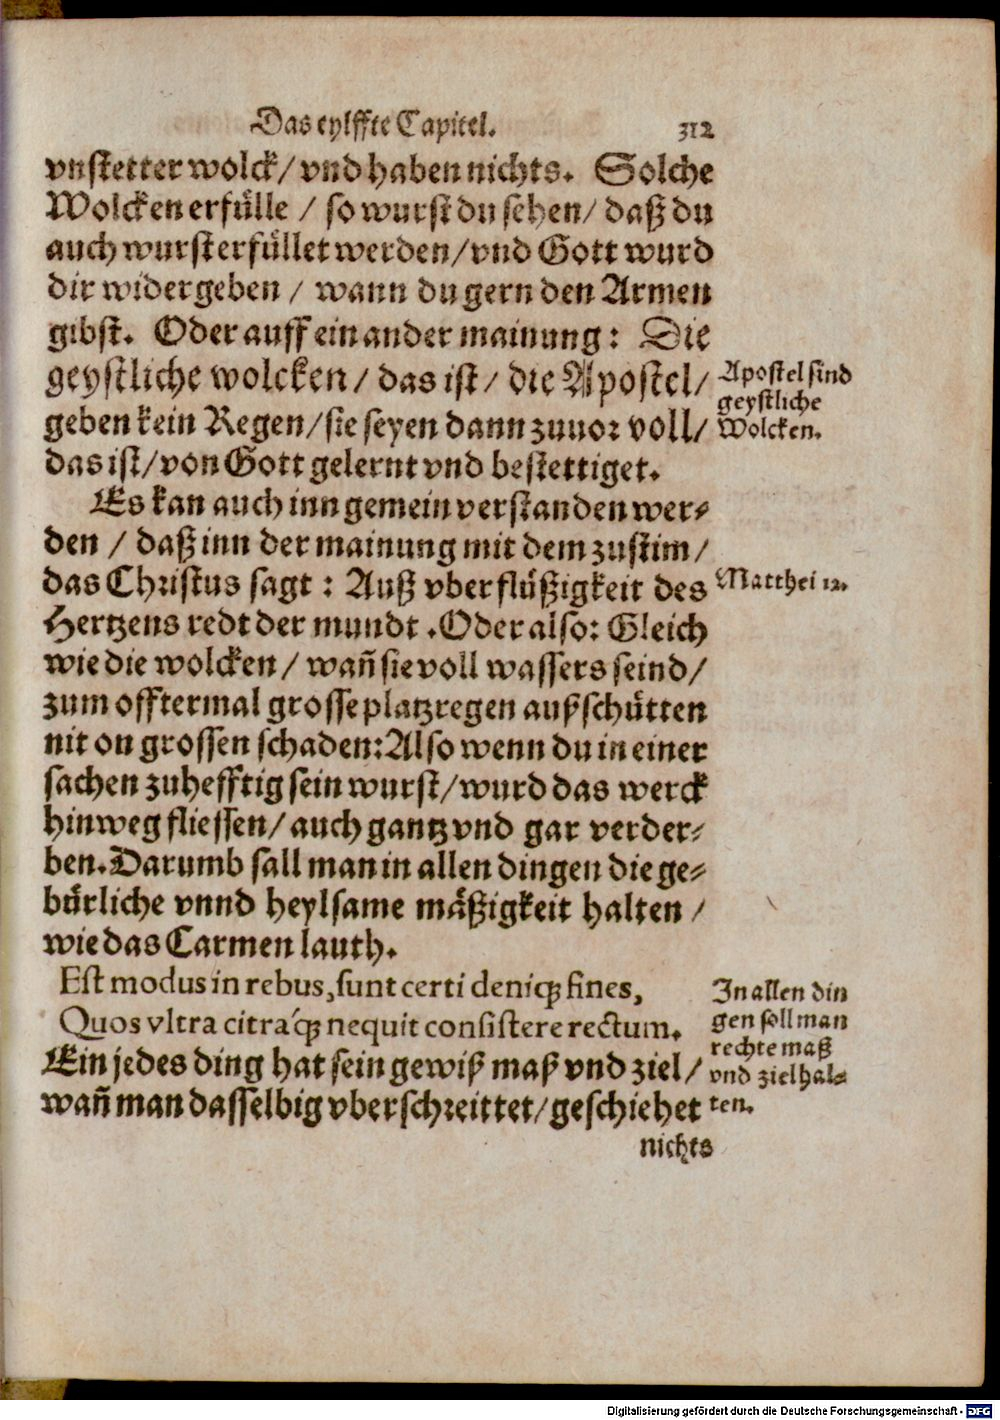 Das eylffte Capitel. 312
vnstetter wolck/ vnd haben nichts. Solche
Wolcken erfülle / so wurst du sehen/ daß du
auch wurst erfüllet werden/vnd Gott wurd
dir widergeben / wann du gern den Armen
gibst. Oder auff ein ander mainung: Die
geystliche wolcken/ das ist/ die Apostel/
geben kein Regen/sie seyen dann zuuor voll/
das ist/von Gott gelernt vnd bestettiget.
Apostel sind
geystliche
Wolcken.
Es kan auch inn gemein verstanden wer-
den / daß inn der mainung mit dem zustim/
das Christus sagt: Auß vberflüßigkeit des
Hertzens redt der mundt. Oder also: Gleich
wie die wolcken/ wañ sie voll wassers seind/
zum offtermal grosse platzregen außschütten
nit on grossen schaden: Also wenn du in einer
sachen zuhefftig sein wurst/wurd das werck
hinweg fliessen/ auch gantz vnd gar verder-
ben. Darumb sall man in allen dingen die ge-
bürliche vnnd heylsame mäßigkeit halten /
wie das Carmen lauth.
Matthei 12.
Est modus in rebus, sunt certi deniq; fines,
Quos vltra citráq; nequit consistere rectum.
Ein jedes ding hat sein gewiß maß vnd ziel/
wañ man dasselbig vberschreittet/geschiehet
In allen din
gen soll man
rechte maß
vnd ziel hal-
ten.
nichts
Digitalisierung gefördert durch die Deutsche Forschungsgemeinschaft - DFG